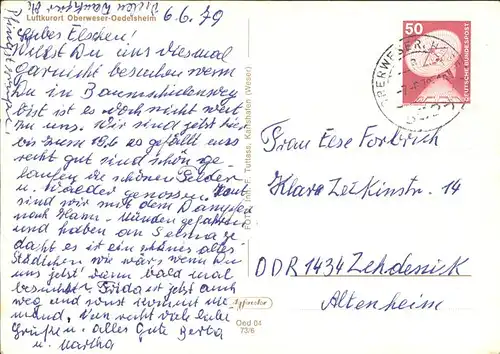 Luftkurort Oberweser-Oedelsheim
6.6.79
Liebes Elschen!
Willst Du uns diesmal
garnicht besuchen wenn
Du in
bist ist es doch nicht weit
zu uns. Wir sind jetzt hier
bis zum 15.6 es gefällt uns
recht gut sind schön ge-
laufen die schönen Felder
u. Wälder genossen.
sind wir mit dem Dampfer
nach Hann-Münden gefahren
und haben an
dacht es ist ein schönes altes
Städtchen wie wärs wenn Du
uns jetzt dann bald mal
besuchst. Frida ist jetzt auch
weg und sonst kommt nie-
mand, Nun recht viele liebe
Grüße u. alles Gute Berta
u. Martha
FOTO Inh. F. Tuttass, Karlshafen (Weser)
Agfacolor
Oed 04
73/6
50
DEUTSCHE BUNDESPOST
OBERWESER
Frau Else Forbrich
Klara Zetkinstr. 14
DDR 1434 Zehdenick
Altenheim